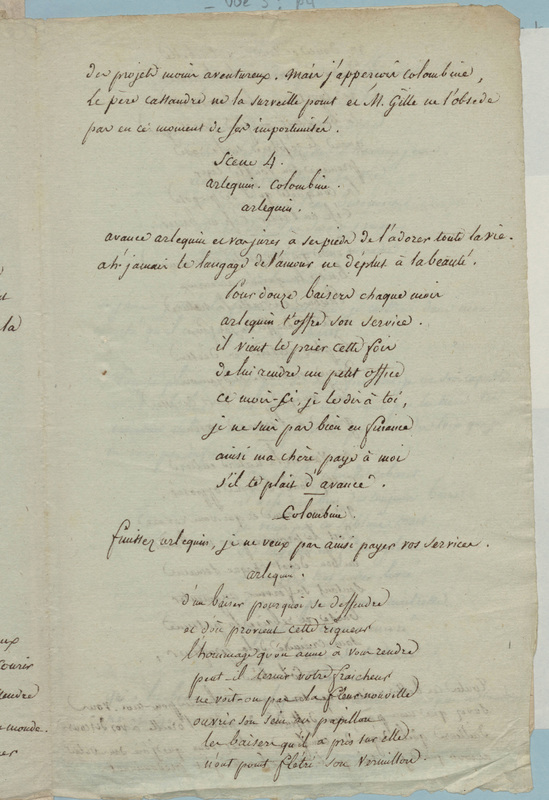 vue 5: p4
des projets moins aventureux. Mais j'apperçois colombine,
le père cassandre ne la surveille point et M. Gille ne l'obsede
pas en ce moment de ses importunités.
Scene 4.
arlequin. Colombine.
arlequin.
avance arlequin et vas jurer à ses pieds de l'adorer toute la vie.
ah! jamais le langage de l'amour ne déplut à la beauté.
Pour douze baisers chaque mois
arlequin t'offre son service.
il vient te prier cette fois
de lui rendre un petit office
ce mois-ci, je le dis à toi,
je ne suis pas bien en finance
ainsi ma chère paye à moi
s'il te plait d'avance.
Colombine.
finissez arlequin, je ne veux pas ainsi payer vos services.
arlequin.
d'un baiser pourquoi se deffendre
et d'où provient cette rigueur
l'hommage qu'on aime à vous rendre
peut-il ternir votre fraicheur
ne voit-on pas la fleur nouvelle
ouvrir son sein au papillon
les baisers qu'il a pris sur elle
n'ont point flétri son vermillon.
la
ourir
endre
monde.